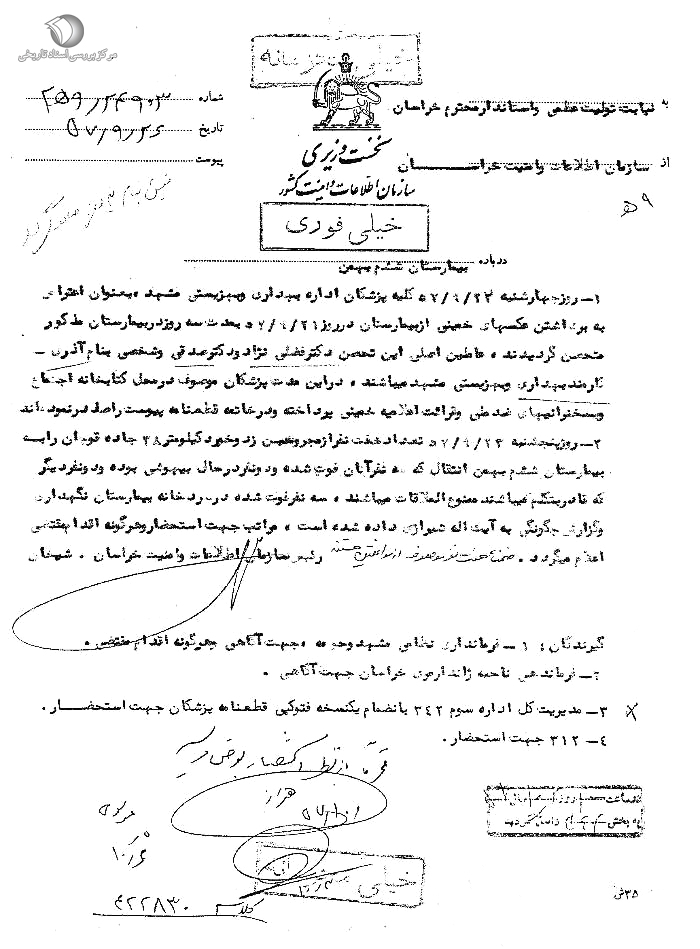 مرکز بررسی اسناد تاریخی
خیلی محرمانه
شماره
تاریخ ۵۷/۹/۲۶
پیوست
به نیابت تولیت عظمی واستاندار محترم خراسان
از سازمان اطلاعات وامنیت خراسان
نخست وزیری
سازمان اطلاعات وامنیت کشور
خیلی فوری
ه ۹
درباره بیمارستان ششم بهمن
۱- روز چهارشنبه ۵۷/۹/۲۲ کلیه پزشکان اداره بهداری وبهزیستی مشهد بعنوان اعتراض
به برداشتن عکسهای خمینی از بیمارستان در روز ۵۷/۹/۲۱ بمدت سه روز در بیمارستان مذکور
متحصن گردیدند ، عاملین اصلی این تحصن دکتر فضلی نژاد ودکتر صدقی وشخصی بنام آذری -
کارمند بهداری وبهزیستی مشهد میباشند ، در این مدت پزشکان موصوف در محل کتابخانه اجتماع
وبسخنرانیهای ضد ملی وقرائت اعلامیه خمینی پرداخته ودرخاتمه قطعنامه پیوست راصادر نموده اند
۲- روز پنجشنبه ۵۷/۹/۲۳ تعداد هفت نفر از مجروحین زد وخورد کیلومتر ۳۸ جاده قوچان را به
بیمارستان ششم بهمن انتقال که سه نفر آنان فوت شده ودونفر در حال بیهوشی بوده ودونفر دیگر
که قادر بتکلم میباشند ممنوع الملاقات میباشند ، سه نفر فوت شده در سردخانه بیمارستان نگهداری
وگزارش چگونگی به آیت اله شیرازی داده شده است ، مراتب جهت استحضار وهرگونه اقدام مقتضی
اعلام میگردد . ضمناً هفت نفر موصوف از هستند رئیس سازمان اطلاعات وامنیت خراسان . شیخان
گیرندگان : ۱- فرمانداری نظامی مشهد وحومه ، جهت آگاهی وهرگونه اقدام مقتضی .
۲- فرماندهی ناحیه ژاندارمری خراسان جهت آگاهی .
۳- مدیریت کل اداره سوم ۳۴۲ بانضمام یکنسخه فتوکپی قطعنامه پزشکان جهت استحضار .
۴- ۳۱۲ جهت استحضار .
خیلی محرمانه
کلاسه ۴۲۲۸۳۰
۳۵ش